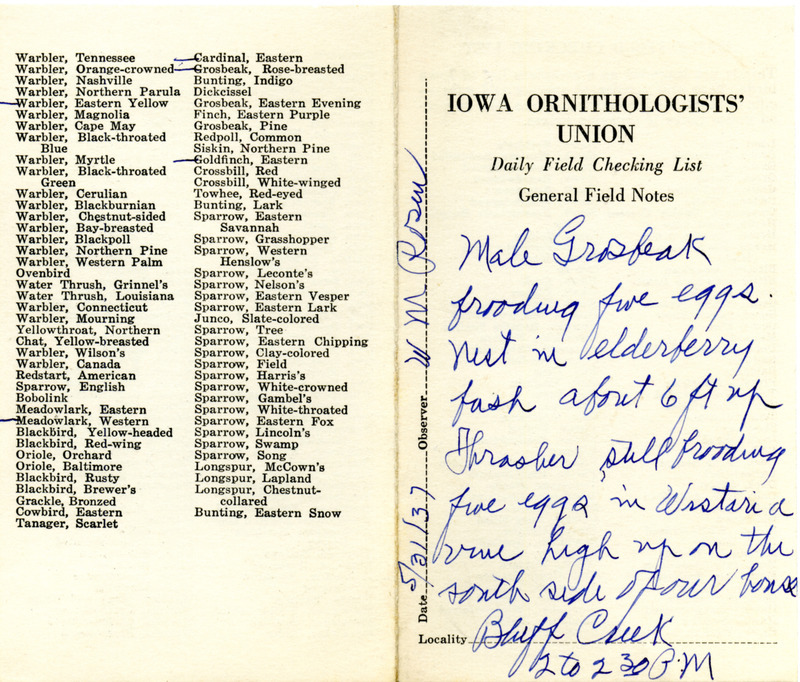 Warbler, Tennessee
Warbler, Orange-crowned
Warbler, Nashville
Warbler, Northern Parula
Warbler, Eastern Yellow
Warbler, Magnolia
Warbler, Cape May
Warbler, Black-throated
Blue
Warbler, Myrtle
Warbler, Black-throated
Green
Warbler, Cerulian
Warbler, Blackburnian
Warbler, Chestnut-sided
Warbler, Bay-breasted
Warbler, Blackpoll
Warbler, Northern Pine
Warbler, Western Palm
Ovenbird
Water Thrush, Grinnel's
Water Thrush, Louisiana
Warbler, Connecticut
Warbler, Mourning
Yellowthroat, Northern
Chat, Yellow-breasted
Warbler, Wilson's
Warbler, Canada
Redstart, American
Sparrow, English
Bobolink
Meadowlark, Eastern
Meadowlark, Western
Blackbird, Yellow-headed
Blackbird, Red-wing
Oriole, Orchard
Oriole, Baltimore
Blackbird, Rusty
Blackbird, Brewer's
Grackle, Bronzed
Cowbird, Eastern
Tanager, Scarlet
Cardinal, Eastern
Grosbeak, Rose-breasted
Bunting, Indigo
Dickcissel
Grosbeak, Eastern Evening
Finch, Eastern Purple
Grosbeak, Pine
Redpoll, Common
Siskin, Northern Pine
Goldfinch, Eastern
Crossbill, Red
Crossbill, White-winged
Towhee, Red-eyed
Bunting, Lark
Sparrow, Eastern
Savannah
Sparrow, Grasshopper
Sparrow, Western
Henslow's
Sparrow, Leconte's
Sparrow, Nelson's
Sparrow, Eastern Vesper
Sparrow, Eastern Lark
Junco, Slate-colored
Sparrow, Tree
Sparrow, Eastern Chipping
Sparrow, Clay-colored
Sparrow, Field
Sparrow, Harris's
Sparrow, White-crowned
Sparrow, Gambel's
Sparrow, White-throated
Sparrow, Eastern Fox
Sparrow, Lincoln's
Sparrow, Swamp
Sparrow, Song
Longspur, McCown's
Longspur, Lapland
Longspur, Chestnut-
collared
Bunting, Eastern Snow
Date 5/31/37 Observer W M Rosen
IOWA ORNITHOLOGISTS'
UNION
Daily Field Checking List
General Field Notes
Male Grosbeak
brooding five eggs.
Nest in elderberry
bush about 6 ft up
Thrasher still brooding
five eggs in Wistaria
vine high up on the
south side of our house
Locality Bluff Creek
2 to 2 30 P.M